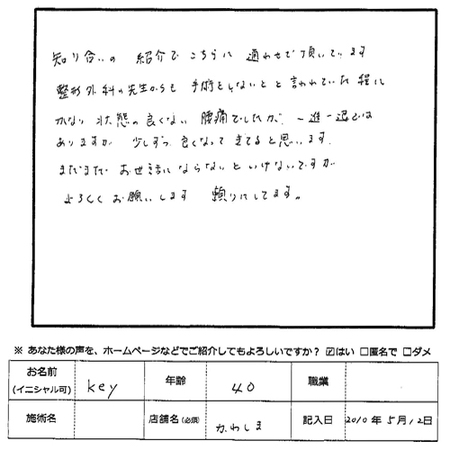 知り合いの 紹介で こちらに 通わせて頂いています
整形外科の先生からも 手術をしないとと 言われていた程に
かなり 状態の良くない 腰痛でしたが、一進一退では
ありますが 少しずつ 良くなって きてると思います。
まだまだ お世話に ならないと いけないですが
よろしく お願いします 頼りにしてます。
※ あなた様の声を、ホームページなどでご紹介してもよろしいですか? ☑はい □匿名で □ダメ
お名前 (イニシャル可) key 年齢 40 職業
施術名 店舗名(必須) かわしま 記入日 2010年 5月 12日